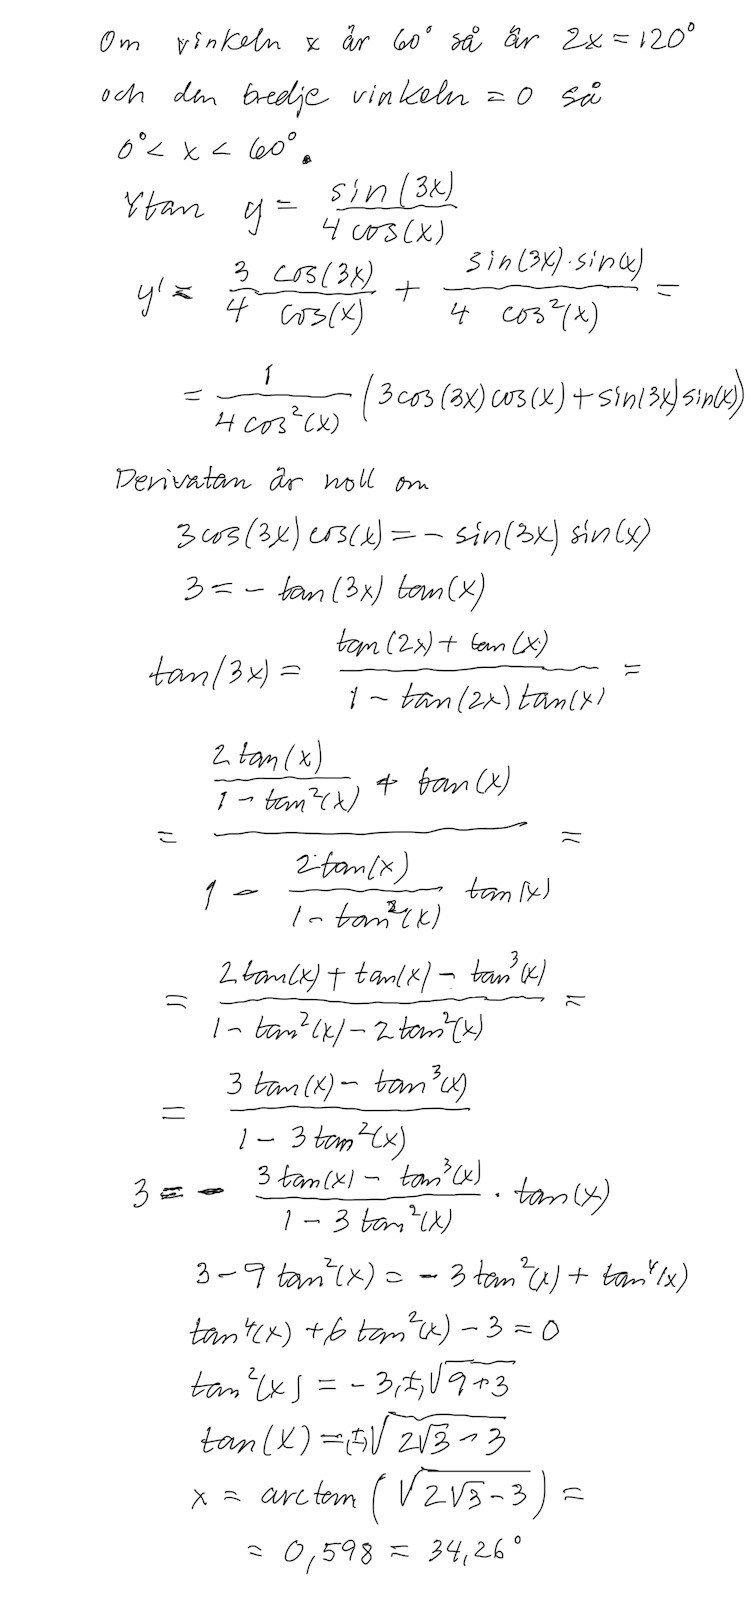 Om vinkeln x är 60° så är 2x = 120°
och den tredje vinkeln = 0 så
0° < x < 60°.
Ytan y = sin(3x) / 4 cos(x)
y' = 3 cos(3x) / 4 cos(x) + sin(3x)·sin(x) / 4 cos²(x) =
= 1 / 4 cos²(x) (3 cos(3x) cos(x) + sin(3x) sin(x))
Derivatan är noll om
3 cos(3x) cos(x) = - sin(3x) sin(x)
3 = - tan(3x) tan(x)
tan(3x) = tan(2x) + tan(x) / 1 - tan(2x) tan(x) =
= (2 tan(x) / 1 - tan²(x) + tan(x)) / (1 - 2 tan(x) / 1 - tan²(x) tan(x)) =
= 2 tan(x) + tan(x) - tan³(x) / 1 - tan²(x) - 2 tan²(x) =
= 3 tan(x) - tan³(x) / 1 - 3 tan²(x)
3 = - 3 tan(x) - tan³(x) / 1 - 3 tan²(x) · tan(x)
3 - 9 tan²(x) = - 3 tan²(x) + tan⁴(x)
tan⁴(x) + 6 tan²(x) - 3 = 0
tan²(x) = - 3 (±) √9 + 3
tan(x) = (±) √2√3 - 3
x = arctan (√2√3 - 3) =
= 0,598 = 34,26°